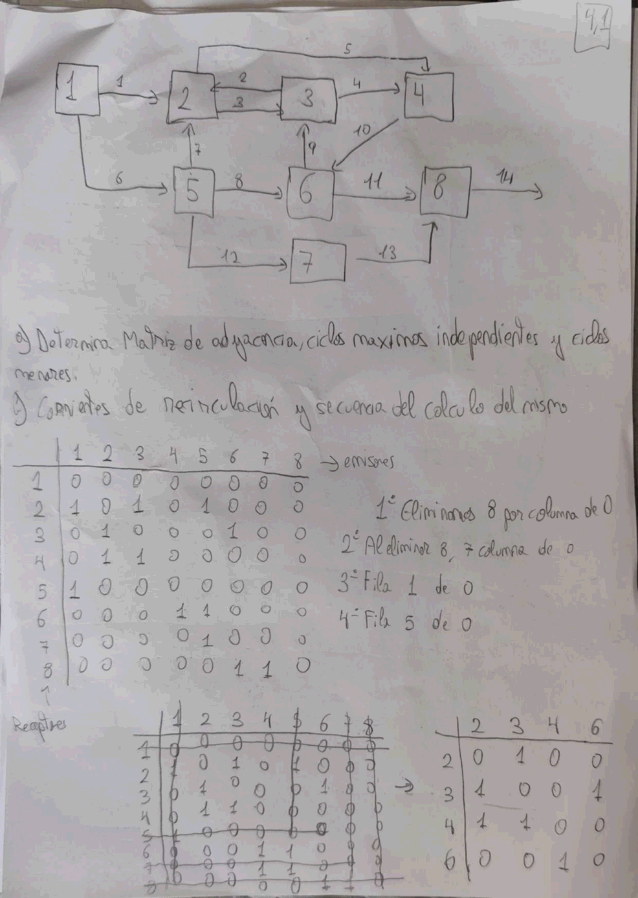 4,1
5
1 1 2 2 3 4 4
3
7 9 10
6 5 8 6 11 8 14
12 7 13
a) Determina Matriz de adyacencia, ciclos maximos independientes y ciclos
menores.
Corrientes de recirculación y secuencia del calculo del mismo
1 2 3 4 5 6 7 8 → emisores
1 0 0 0 0 0 0 0 0
2 1 0 1 0 1 0 0 0
3 0 1 0 0 0 1 0 0
4 0 1 1 0 0 0 0 0
5 1 0 0 0 0 0 0 0
6 0 0 0 1 1 0 0 0
7 0 0 0 0 1 0 0 0
8 0 0 0 0 0 1 1 0
↑
Receptores
1º Eliminamos 8 por columna de 0
2º Al eliminar 8, 7 columna de 0
3º Fila 1 de 0
4º Fila 5 de 0
1 2 3 4 5 6 7 8
1 0 0 0 0 0 0 0 0
2 1 0 1 0 1 0 0 0
3 0 1 0 0 0 1 0 0
4 0 1 1 0 0 0 0 0
5
6 0 0 0 1 1 0 0 0
7
8
→
2 3 4 6
2 0 1 0 0
3 1 0 0 1
4 1 1 0 0
6 0 0 1 0